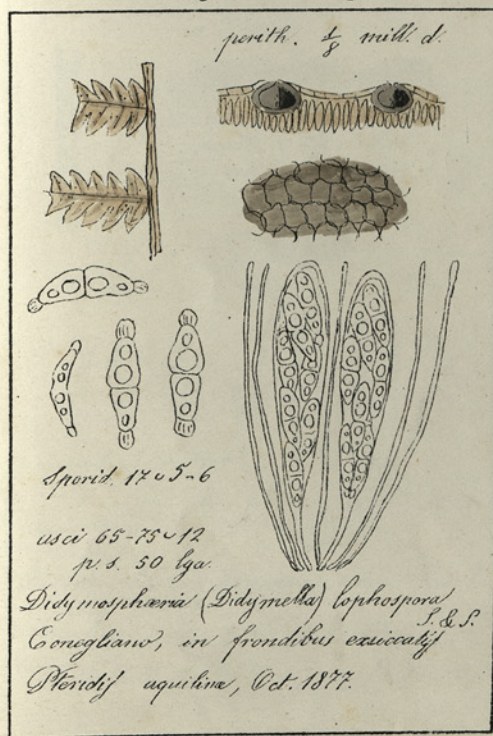 perith. 1/8 mill. d.
Sporid. 17 ⌣ 5-6
asci 65-75 ⌣ 12
p. s. 50 lga.
Didymosphæria (Didymella) lophospora
S. & S.
Conegliano, in frondibus exsiccatis
Pteridis aquilinæ, Oct. 1877.